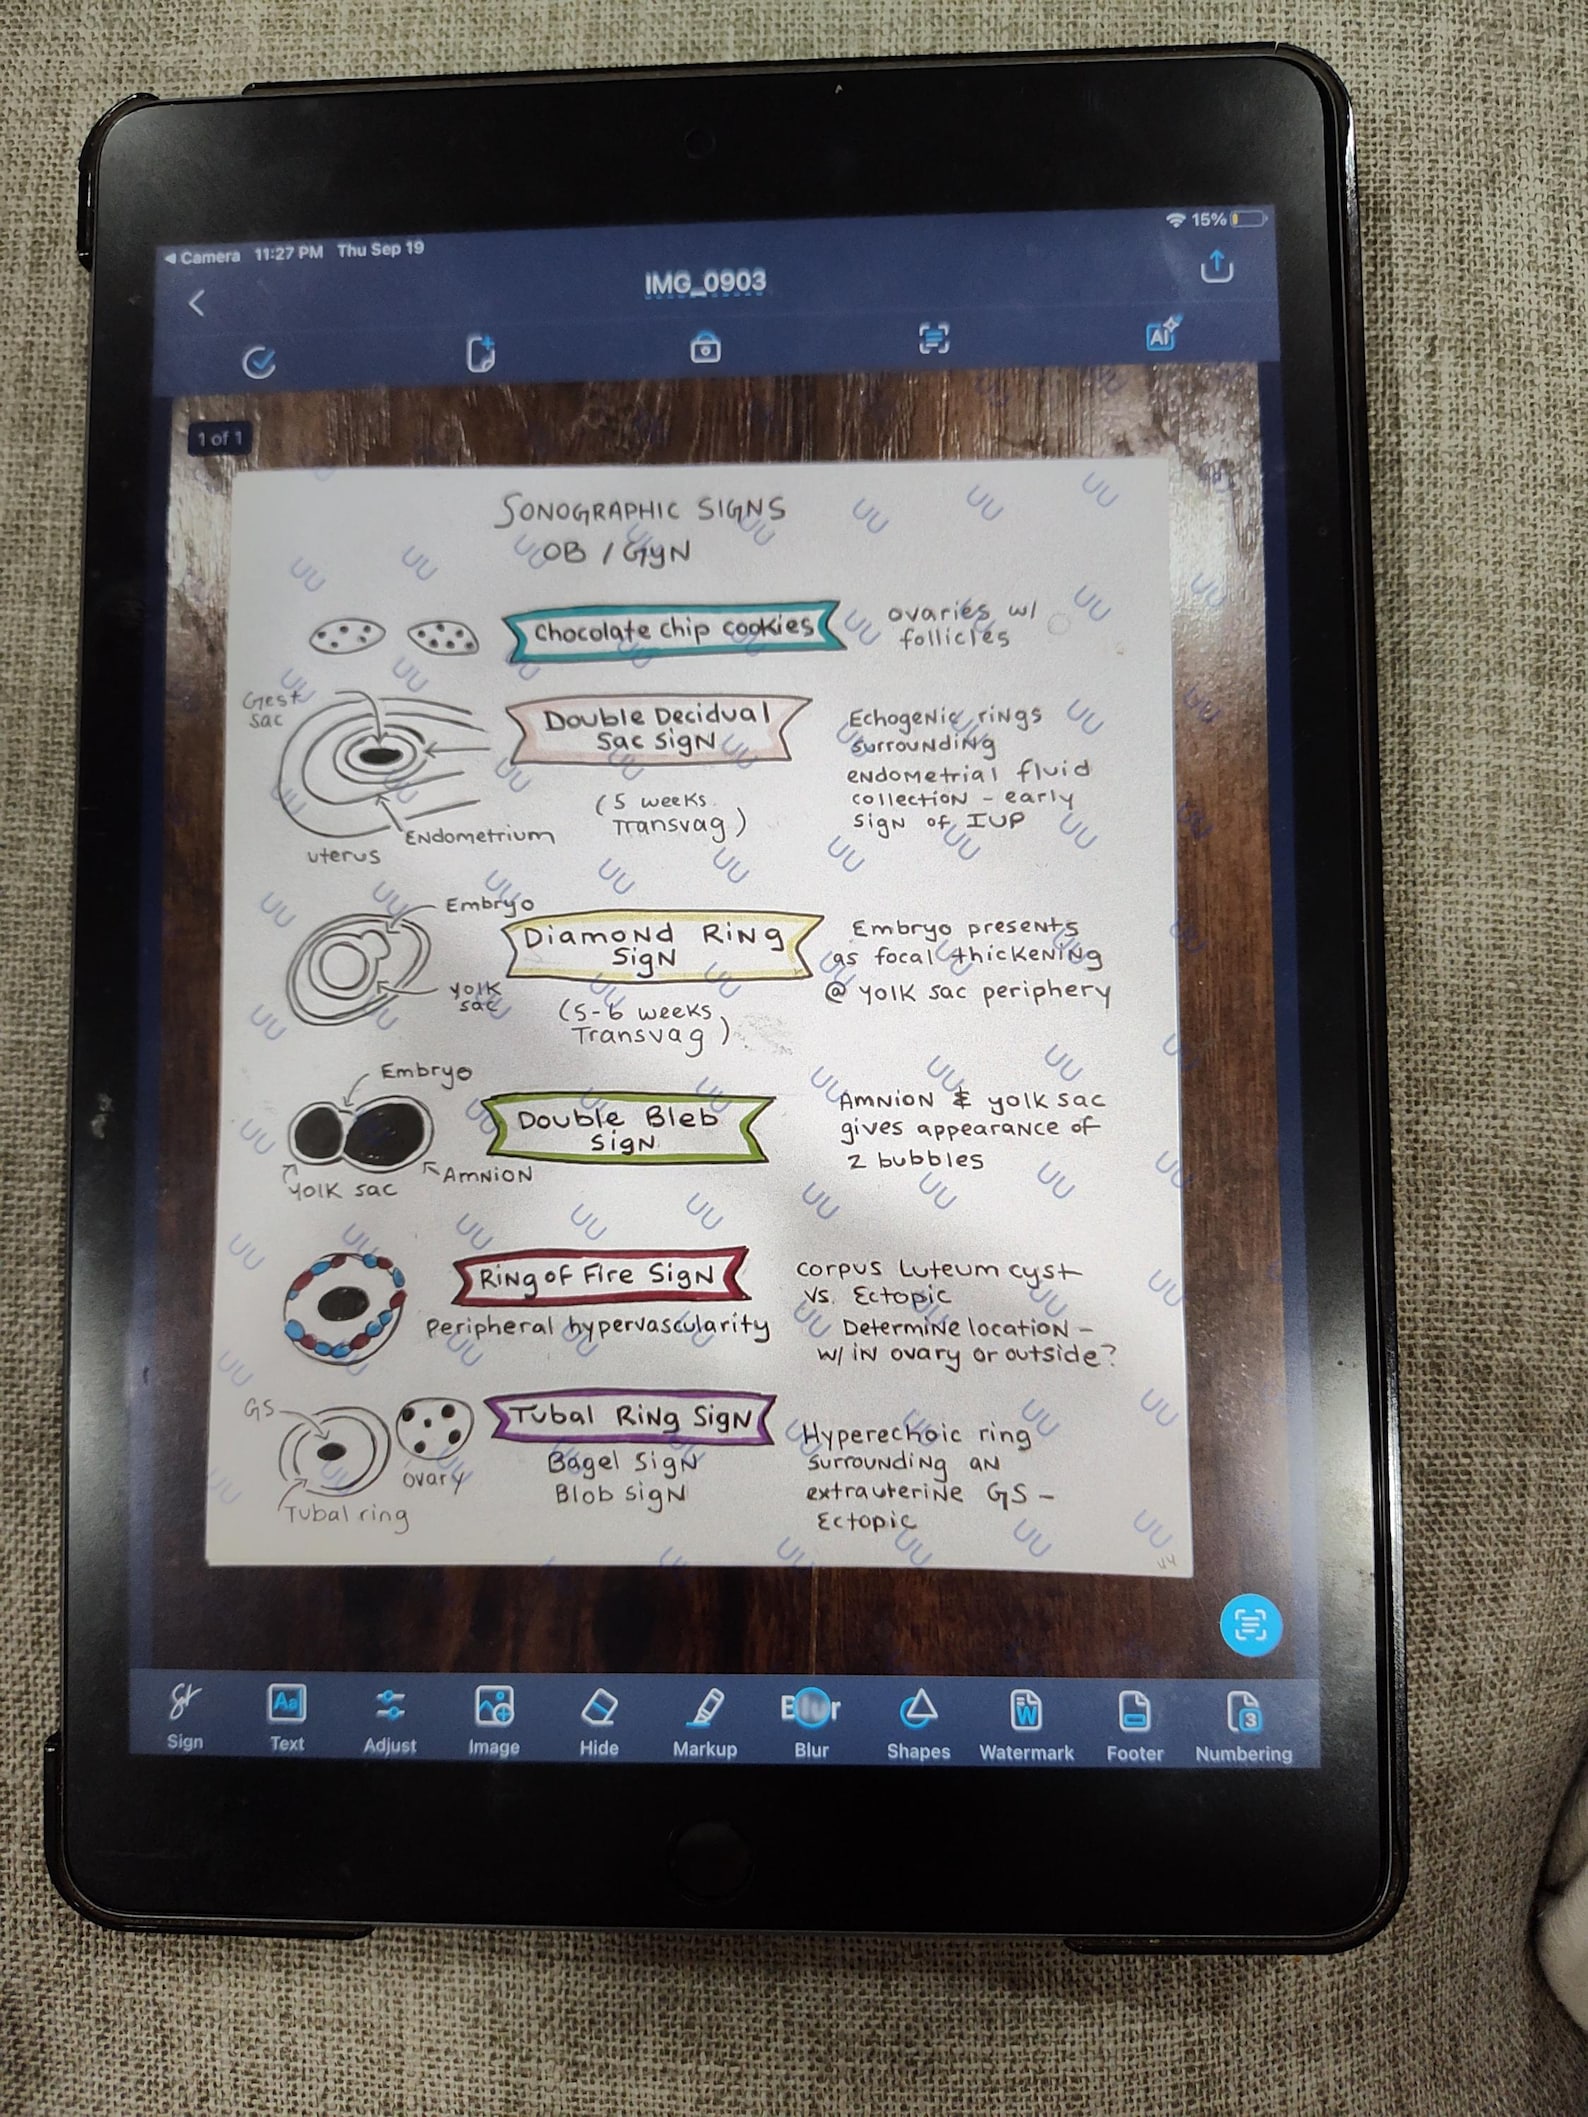 Camera 11:27 PM Thu Sep 19
15%
IMG_0903
AI
1 of 1
SONOGRAPHIC SIGNS
OB / GYN
Chocolate chip cookies
ovaries w/
follicles
Gest
sac
Endometrium
uterus
Double Decidual
Sac Sign
(5 weeks
Transvag)
Echogenic rings
surrounding
endometrial fluid
collection - early
sign of IUP
Embryo
yolk
sac
Diamond Ring
Sign
(5-6 weeks
Transvag)
Embryo presents
as focal thickening
@ yolk sac periphery
Embryo
Yolk sac
Amnion
Double Bleb
Sign
Amnion & yolk sac
gives appearance of
2 bubbles
Ring of Fire Sign
Peripheral hypervascularity
corpus Luteum cyst
vs. Ectopic
Determine location -
w/in ovary or outside?
GS
ovary
Tubal ring
Tubal Ring Sign
Bagel Sign
Blob sign
Hyperechoic ring
surrounding an
extrauterine GS -
Ectopic
UU
Sign
Aa
Text
Adjust
Image
Hide
Markup
Blur
Blur
Shapes
W
Watermark
Footer
3
Numbering